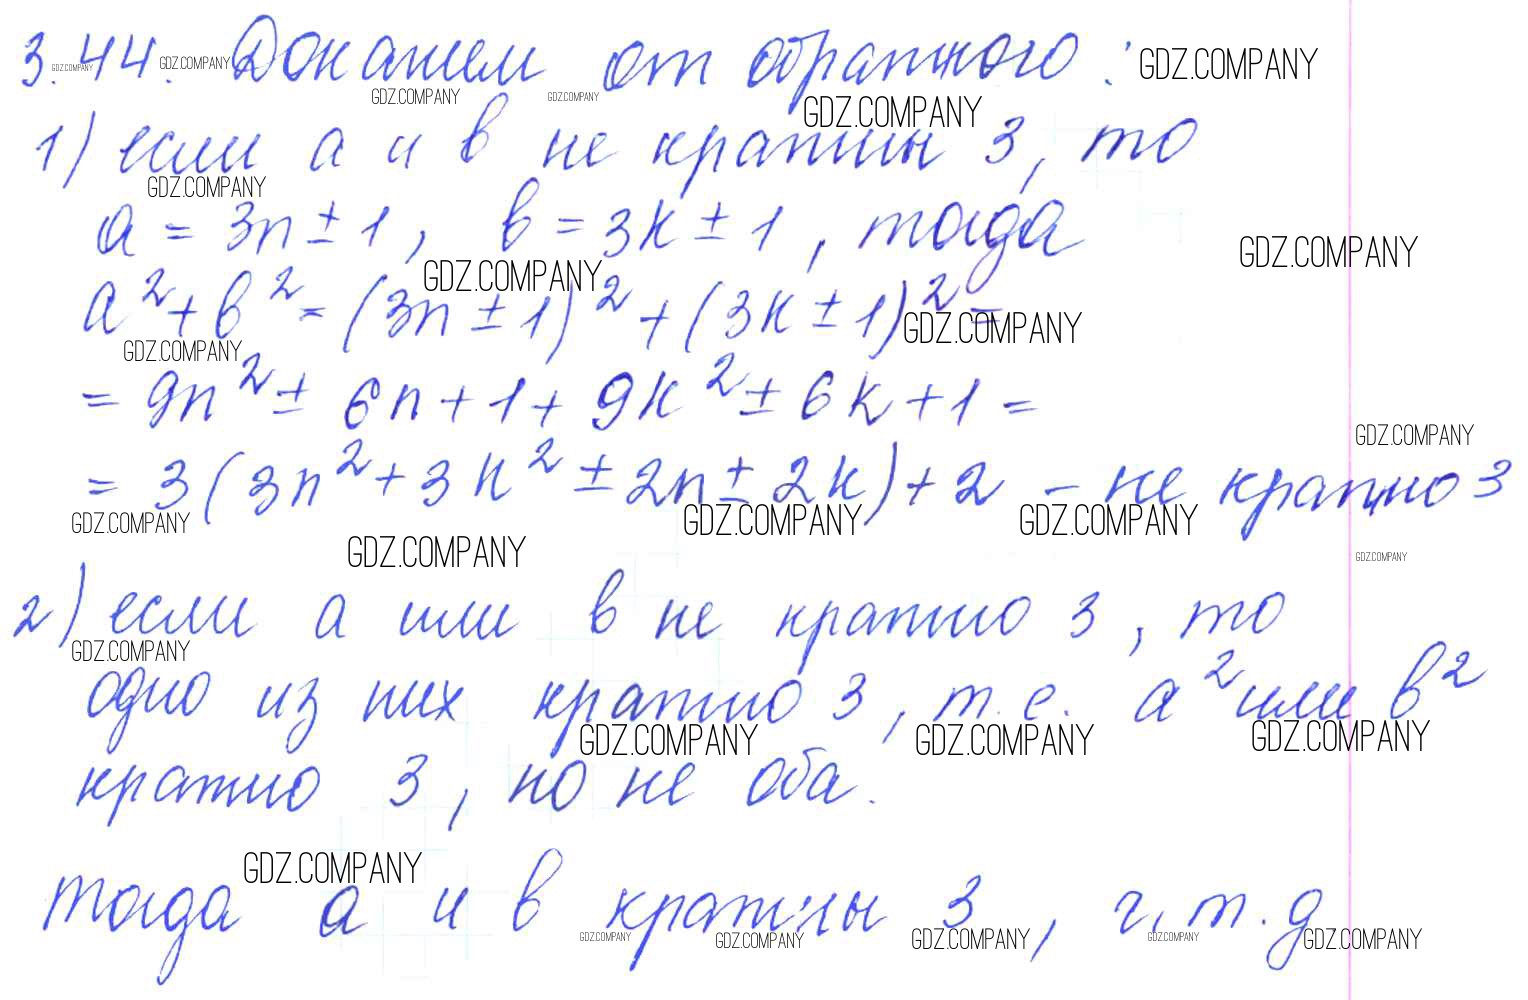 3.44. Докажем от обратного:
1) если a и b не кратны 3, то
a = 3n ± 1, b = 3k ± 1, тогда
a² + b² = (3n ± 1)² + (3k ± 1)² =
= 9n² ± 6n + 1 + 9k² ± 6k + 1 =
= 3(3n² + 3k² ± 2n ± 2k) + 2 – не кратно 3
2) если a или b не кратно 3, то
одно из них кратно 3, т.е. a² или b²
кратно 3, но не оба.
тогда a и b кратны 3, ч.т.д
GDZ.COMPANY